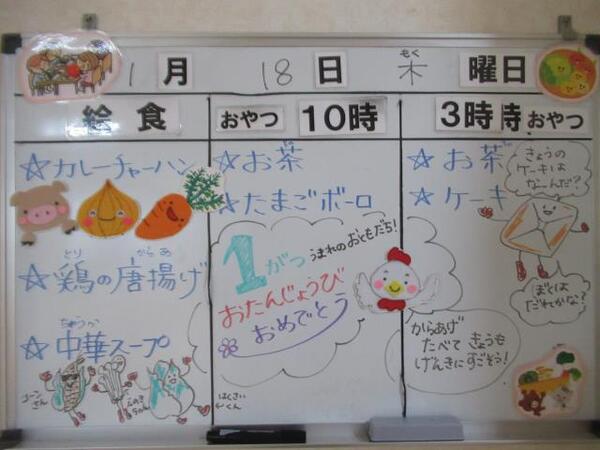 1月 18日 木曜日
もく
給食
おやつ 10時
3時 おやつ
☆カレーチャーハン
☆鶏の唐揚げ
とり からあ
☆中華スープ
ちゅうか
コーンさん
えのきちゃん
はくさいくん
☆お茶
☆たまごボーロ
1がつ うまれのおともだち!
おたんじょうび
おめでとう
☆お茶
☆ケーキ
きょうの
ケーキは
なーんだ?
ぼくは
だれかな?
からあげ
たべて きょうも
げんきにすごそう!